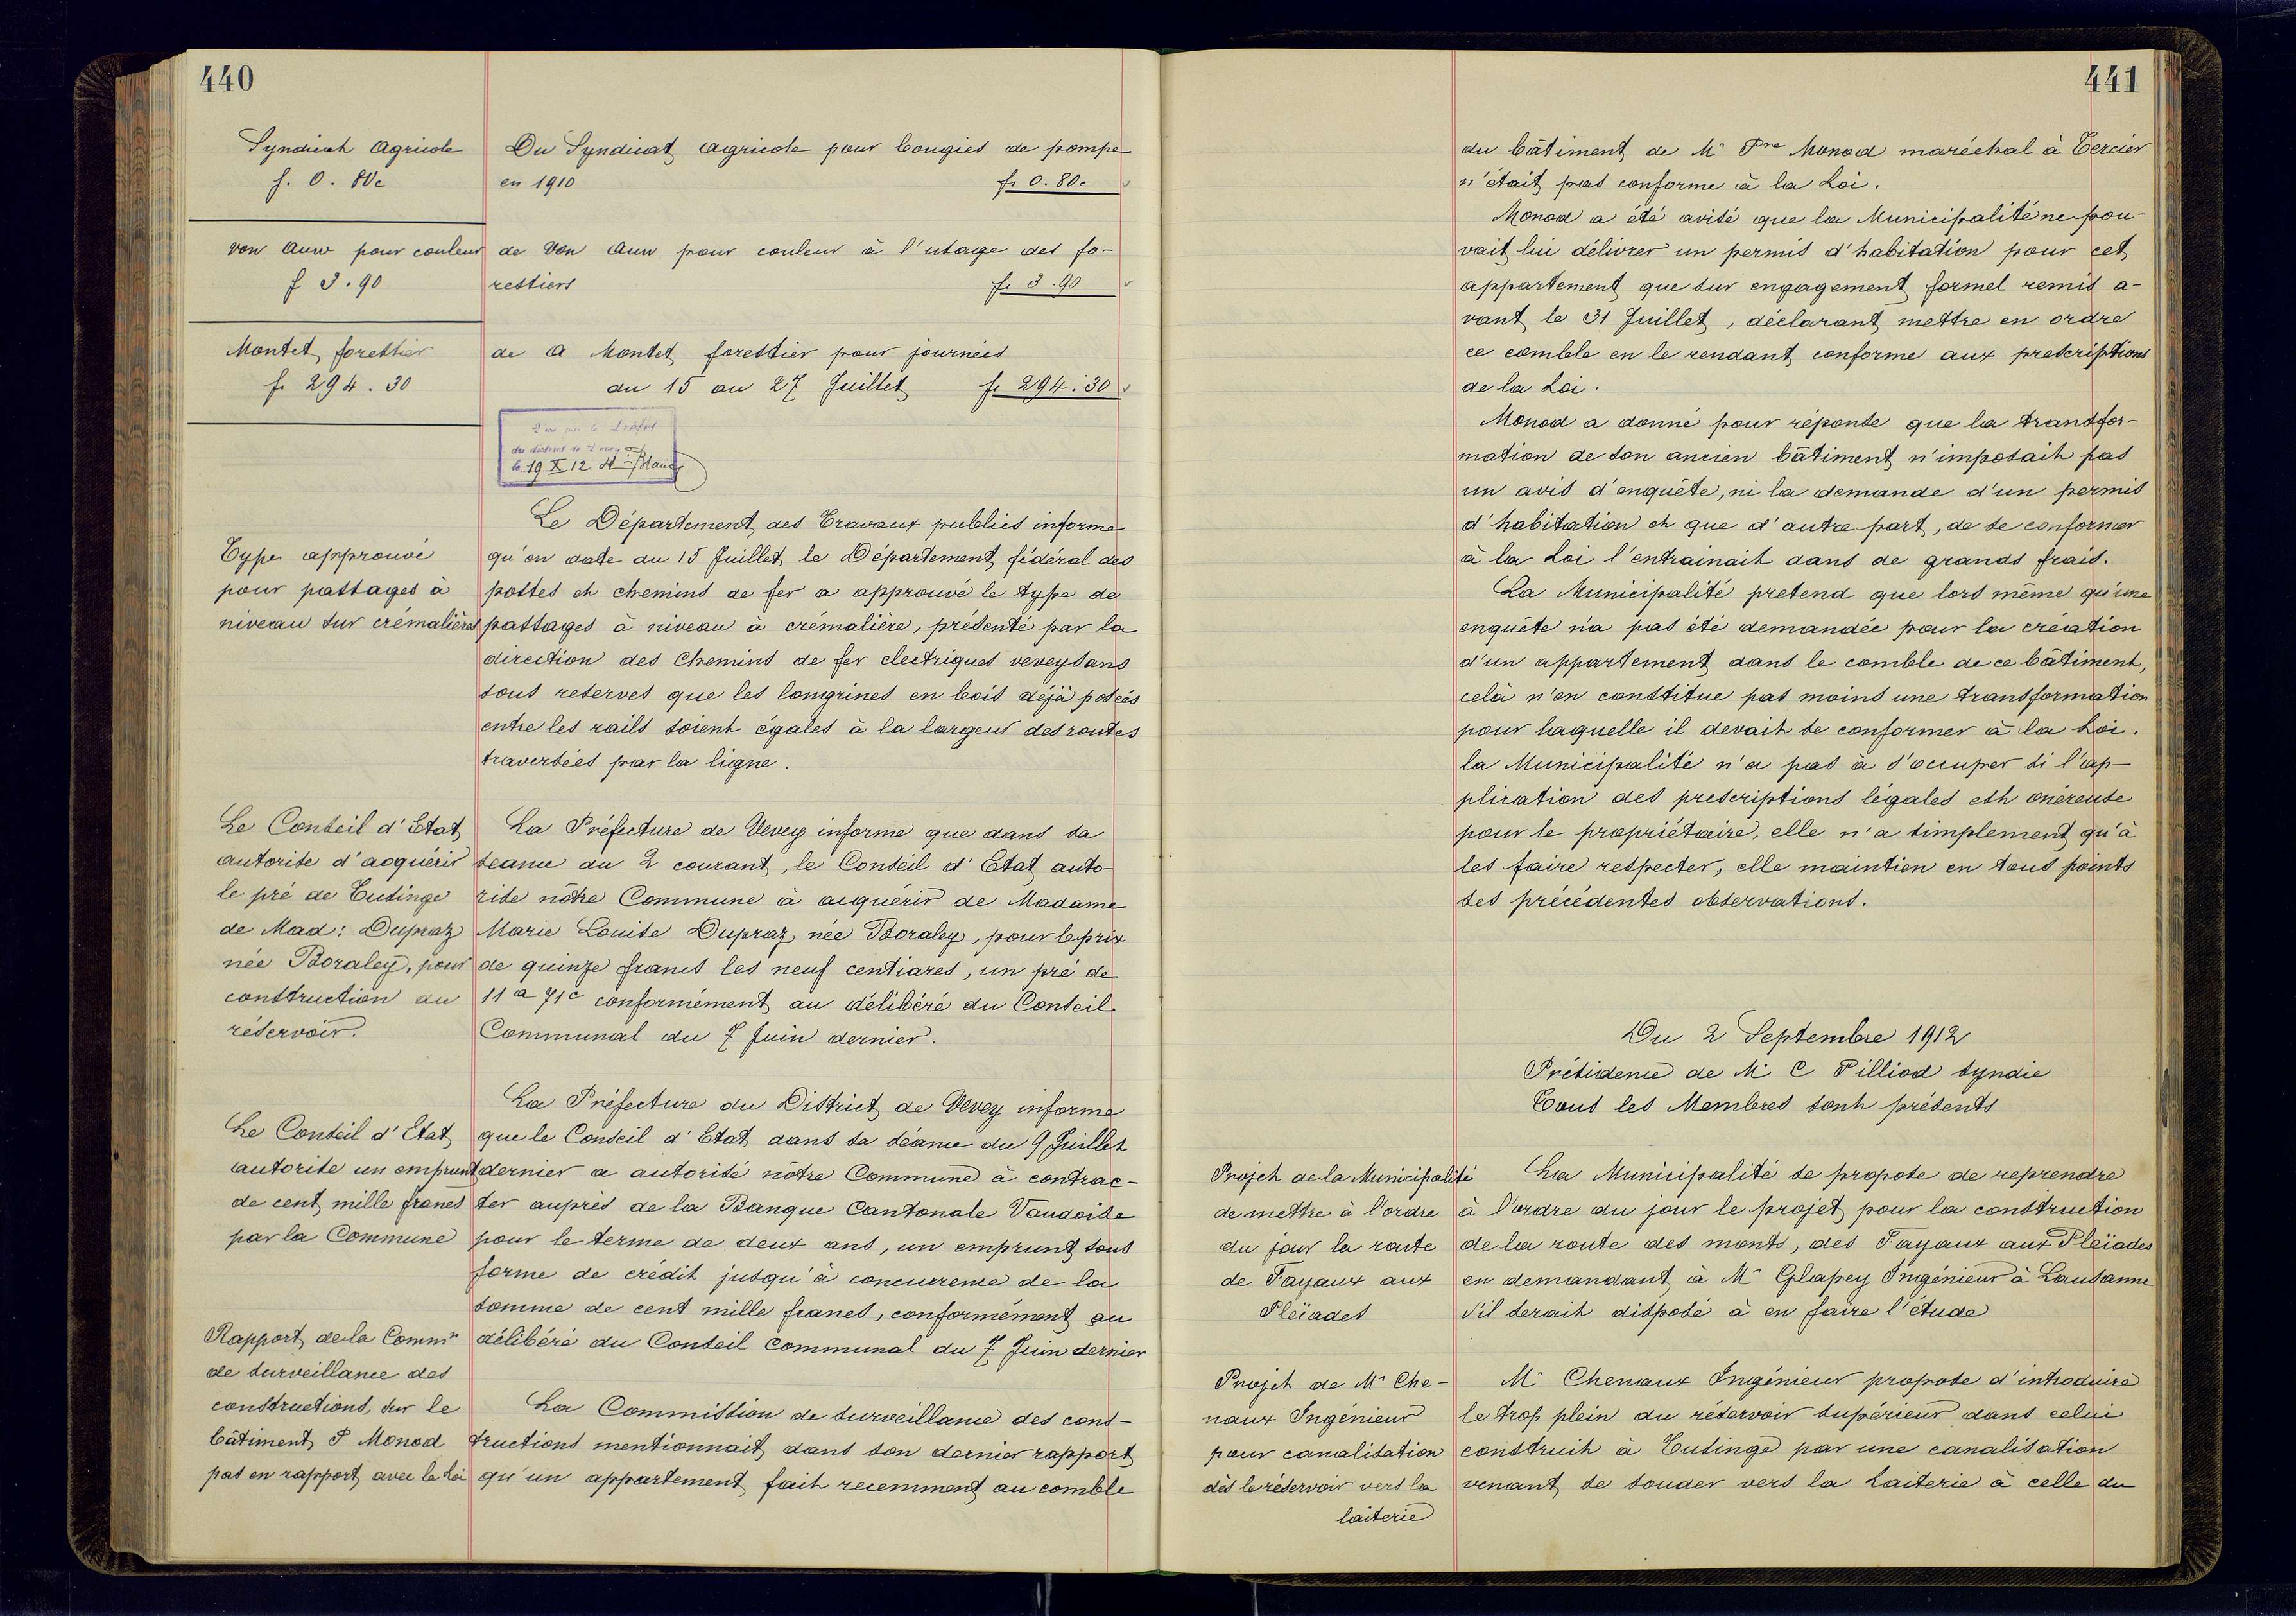 440
Syndicat Agricole
f. 0. 80c
Du Syndicat agricole pour bougies de pompe
en 1910 fr 0.80c
von Auw pour couleur
f 3.90
de Von Auw pour couleur à l'usage des fo-
restiers fr 3.90
Montet forestier
fr 294.30
de A Montet forestier pour journées
du 15 au 27 Juillet fr 294.30
Vu par le Préfet
du district de Vevey
le 19 X 12
Type approuvé
pour passages à
niveau sur crémalières
Le Département des Travaux publics informe
qu'en date du 15 Juillet le Département fédéral des
postes et chemins de fer a approuvé le type de
passages à niveau à crémalière, présenté par la
direction des Chemins de fer electriques veveysans
sous reserves que les longrines en bois déjà posées
entre les rails soient égales à la largeur des routes
traversées par la ligne.
Le Conseil d'Etat
autorise d'acquérir
le pré de Tusinge
de Mad: Dupraz
née Boraley, pour
construction du
réservoir.
La Préfecture de Vevey informe que dans sa
seance du 2 courant, le Conseil d'Etat auto-
rise nôtre Commune à acquérir de Madame
Marie Louise Dupraz née Boraley, pour le prix
de quinze francs les neuf centiares, un pré de
11a 71c conformément au délibéré du Conseil
Communal du 7 Juin dernier.
Le Conseil d'Etat
autorise un emprunt
de cent mille francs
par la Commune
La Préfecture du District de Vevey informe
que le Conseil d'Etat dans sa séance du 9 Juillet
dernier a autorisé nôtre Commune à contrac-
ter auprès de la Banque Cantonale Vaudoise
pour le terme de deux ans, un emprunt sous
forme de crédit jusqu'à concurrence de la
somme de cent mille francs, conformément au
délibéré du Conseil Communal du 7 Juin dernier
Rapport de la Common
de surveillance des
constructions, sur le
bâtiment P Monod
pas en rapport avec la Loi
La Commission de surveillance des cons-
tructions mentionnait dans son dernier rapport
qu'un appartement fait recemment au comble
441
du bâtiment de Mr Pre Monod maréchal à Tercier
n'était pas conforme à la Loi.
Monod a été avisé que la Municipalité ne pou-
vait lui délivrer un permis d'habitation pour cet
appartement que sur engagement formel remis a-
vant le 31 Juillet, déclarant mettre en ordre
ce comble en le rendant conforme aux prescriptions
de la Loi.
Monod a donné pour réponse que la transfor-
mation de son ancien bâtiment n'imposait pas
un avis d'enquête, ni la demande d'un permis
d'habitation et que d'autre part, de se conformer
à la Loi l'entrainait dans de grands frais.
La Municipalité pretend que lors même qu'une
enquête n'a pas été demandée pour la création
d'un appartement dans le comble de ce bâtiment,
celà n'en constitue pas moins une transformation
pour laquelle il devait se conformer à la Loi.
la Municipalité n'a pas à s'occuper si l'ap-
plication des prescriptions légales est onéreuse
pour le propriétaire, elle n'a simplement qu'à
les faire respecter, elle maintien en tous points
ses précédentes observations.
Du 2 Septembre 1912
Présidence de Mr C Pilliod syndic
Tous les Membres sont présents
Projet de la Municipalité
de mettre à l'ordre
du jour la route
de Fayaux aux
Pleïades
La Municipalité se propose de reprendre
à l'ordre du jour le projet pour la construction
de la route des monts, des Fayaux aux Pleïades
en demandant à Mr Glapey Ingénieur à Lausanne
s'il serait disposé à en faire l'étude
Projet de Mr Che-
naux Ingénieur
pour canalisation
dès le réservoir vers la
laiterie
Mr Chenaux Ingénieur propose d'introduire
le trop plein du réservoir supérieur dans celui
construit à Tusinge par une canalisation
venant se souder vers la Laiterie à celle du